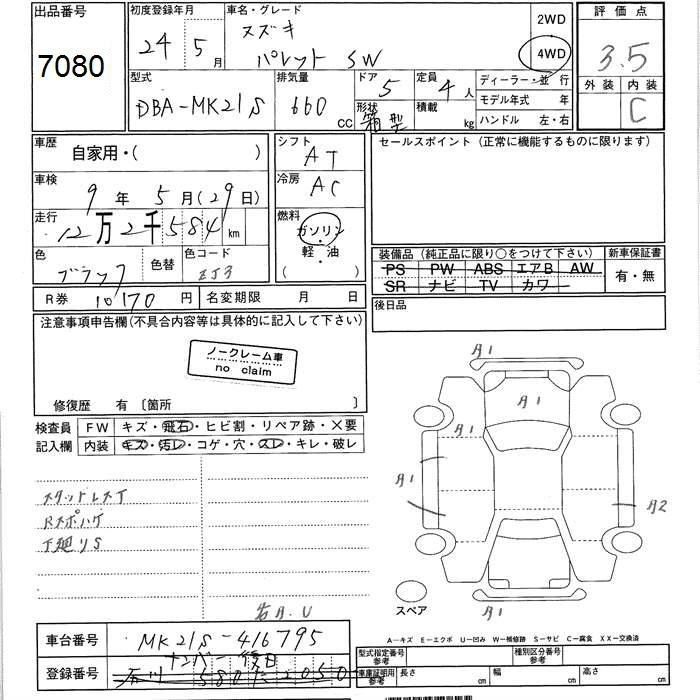 出品番号
7080
初度登録年月
24 年 5 月
車名・グレード
スズキ
パレット SW
2WD
4WD
評価点
3.5
外装 内装
C
型式
DBA-MK21S
排気量
660 cc
ドア
5
形状
箱型
定員
4 人
積載
kg
ディーラー・並 行
モデル年式 年
ハンドル 左・右
車歴
自家用・( )
車検
9 年 5 月(29日)
走行
12万2千584 km
色
ブラック
色替
色コード
ZJ3
R券 10170 円
名変期限 月 日
シフト
AT
冷房
AC
燃料
ガソリン
・
軽・油
( )
セールスポイント (正常に機能するものに限ります)
装備品 (純正品に限り○をつけて下さい)
PS PW ABS エアB AW
SR ナビ TV カワ
新車保証書
有・無
後日品
注意事項申告欄(不具合内容等は具体的に記入して下さい)
ノークレーム車
no claim
修復歴 有 〔箇所 〕
検査員
記入欄
FW キズ・飛石・ヒビ割・リペア跡・X要
内装 キズ・汚レ・コゲ・穴・スレ・キレ・破レ
スタッドレスT
Rスポハゲ
下廻りS
若A.U
A1
A1
A1
A1
A1
A2
A1
スペア
A-キズ E-エクボ U-凹み W-補修跡 S-サビ C-腐食 XX-交換済
車台番号
MK21S-416795
登録番号
ナンバー後日
石川 580 2050
型式指定番号
参考
種別区分番号
参考
車庫証明用
参考
長さ cm
幅 cm
高さ cm